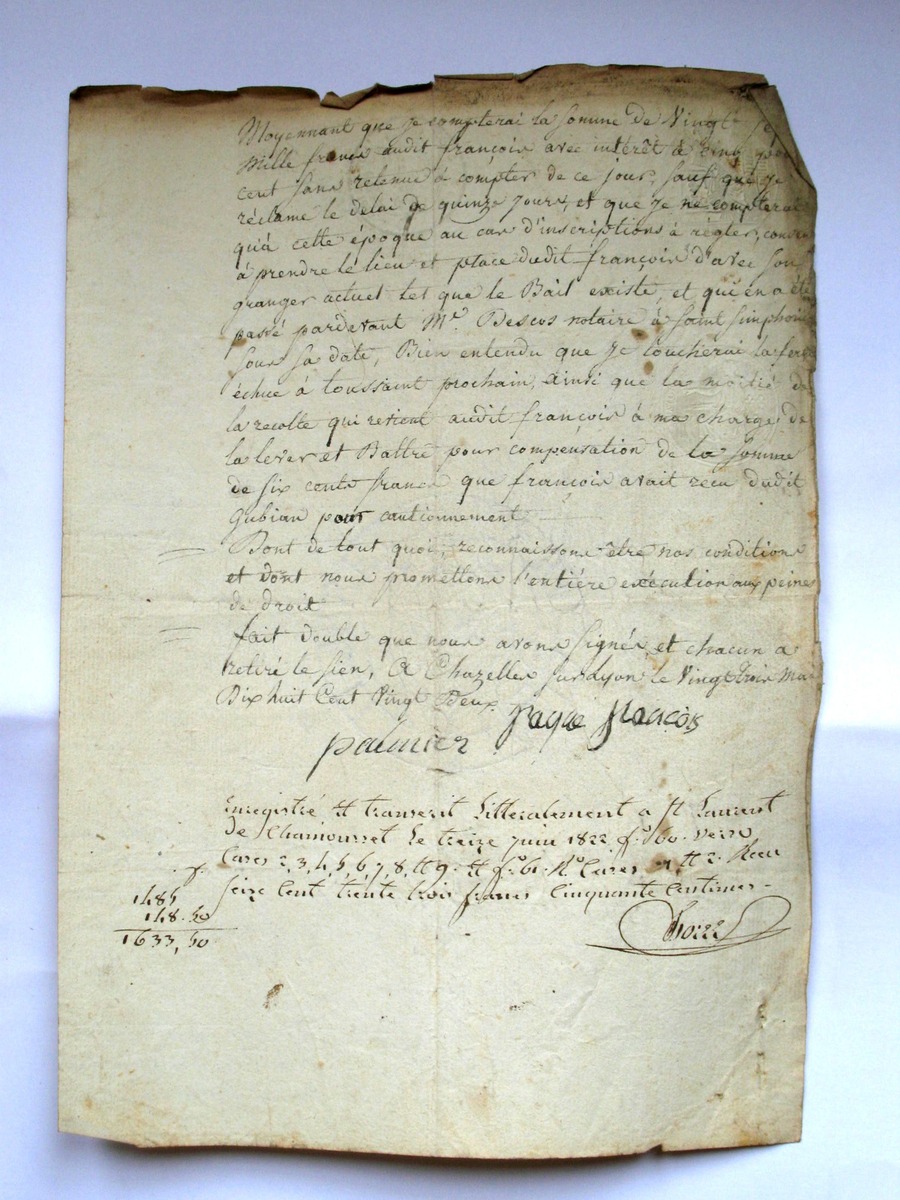 Moyennant que je compterai la somme de Vingt
Mille francs audit françois avec intérêt à cinq pour
cent sans retenue à compter de ce jour, sauf que je
réclame le delai de quinze jours, et que je ne compterai
qu'à cette époque au cas d'inscriptions à régler,
à prendre le lieu et place dudit françois d'avec son
granger actuel tel que le Bail existe, et qui en a été
passé pardevant Me. Descos notaire à Saint Simphorien
sous sa date, Bien entendu que je toucherai la ferme
échue à toussaint prochain, ainsi que la moitié de
la recolte qui revient audit françois à ma charge, de
la lever et Battre pour compensation de la somme
de six cents francs que françois avait reçu dudit
Gubian pour cautionnement
Dont de tout quoi, reconnaissons être nos conditions
et dont nous promettons l'entiére exécution aux peines
de droit
fait double que nous avons signés, et chacun a
retiré le sien, à Chazelles sur Lyon le Vingt trois Mai
Dix huit Cent Vingt Deux
palmier françois
Enregistré et transcrit Littéralement a St Laurent
de Chamousset le treize juin 1822 fo. 60. verso
Cases 2, 3, 4, 5, 6, 7, 8, et 9. et fo. 61. Ro. Cases 1 et 2. Reçu
Seize Cent trente trois francs Cinquante Centimes.
f.
1485
148.50
1633,50